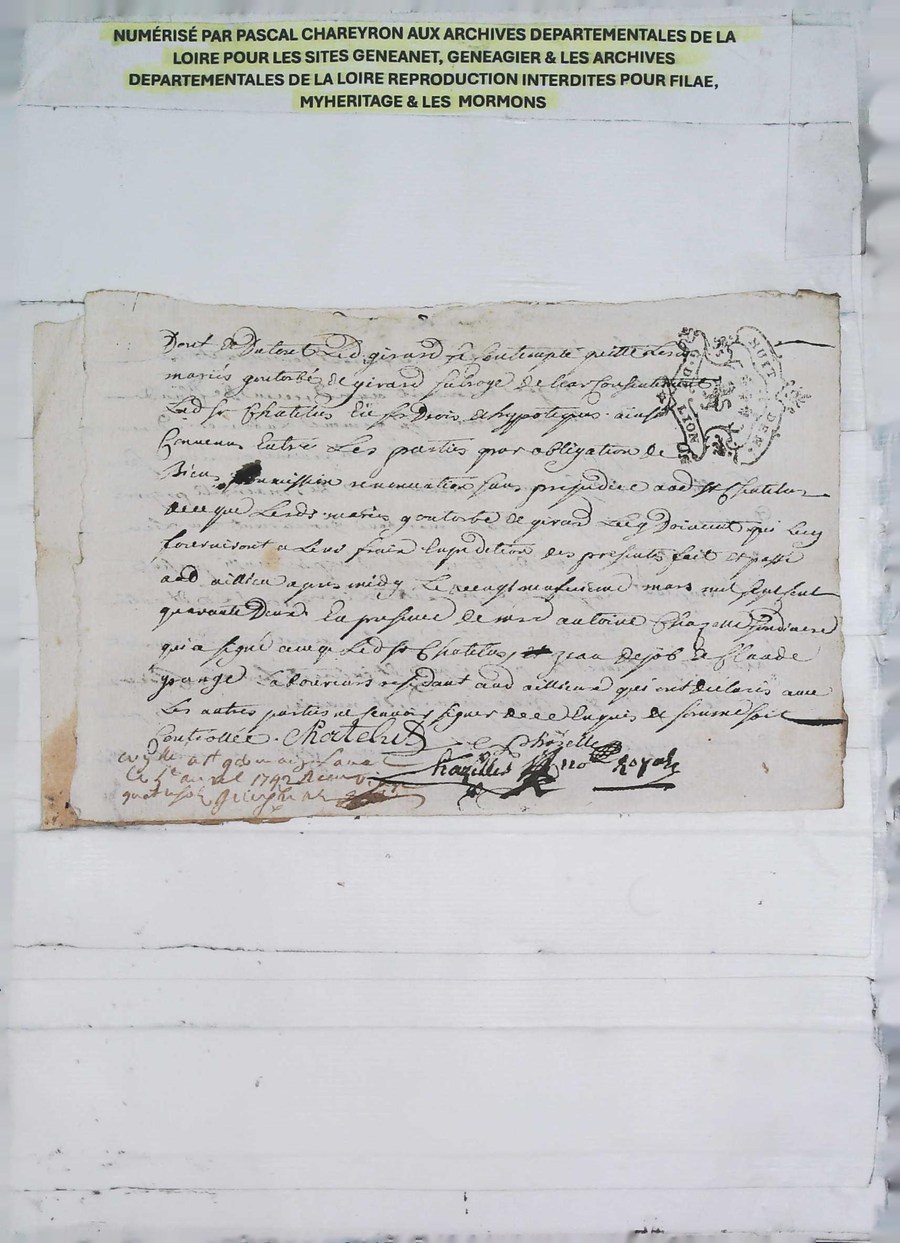 NUMÉRISÉ PAR PASCAL CHAREYRON AUX ARCHIVES DEPARTEMENTALES DE LA
LOIRE POUR LES SITES GENEANET, GENEAGIER & LES ARCHIVES
DEPARTEMENTALES DE LA LOIRE REPRODUCTION INTERDITES POUR FILAE,
MYHERITAGE & LES MORMONS
Dont & Du tout Led girard se contempte quitte Lesd
mariés goutorbé & girard subroge de leur Consentement
Led sr Chatelus Droits & hypoteques ainsi
Convenu Entres Les parties par obligation de
Biens renonciation sans prejudice aud sr Chatelus
de ce que Lesds mariés goutorbe & girard Luy Doivent qui Luy
fourniront a Leur frais Expedition des presentes fait et passé
aud aillieu apres midy Le vingt neufvieme mars mil sept cent
quarante Deux En presence de antoine Chazelle
qui a signé avecq Led sr Chatelus, jean dejob & Claude
grange Laboureurs residant aud aillieux qui ont declarés avec
Les autres parties ne scavoir signer de ce Enquis & sommé soit
Controllée. Chatelus
Chazelle
Chazelles nore Royal
Le avril 1742
HUIT DEN.
G. D. LION